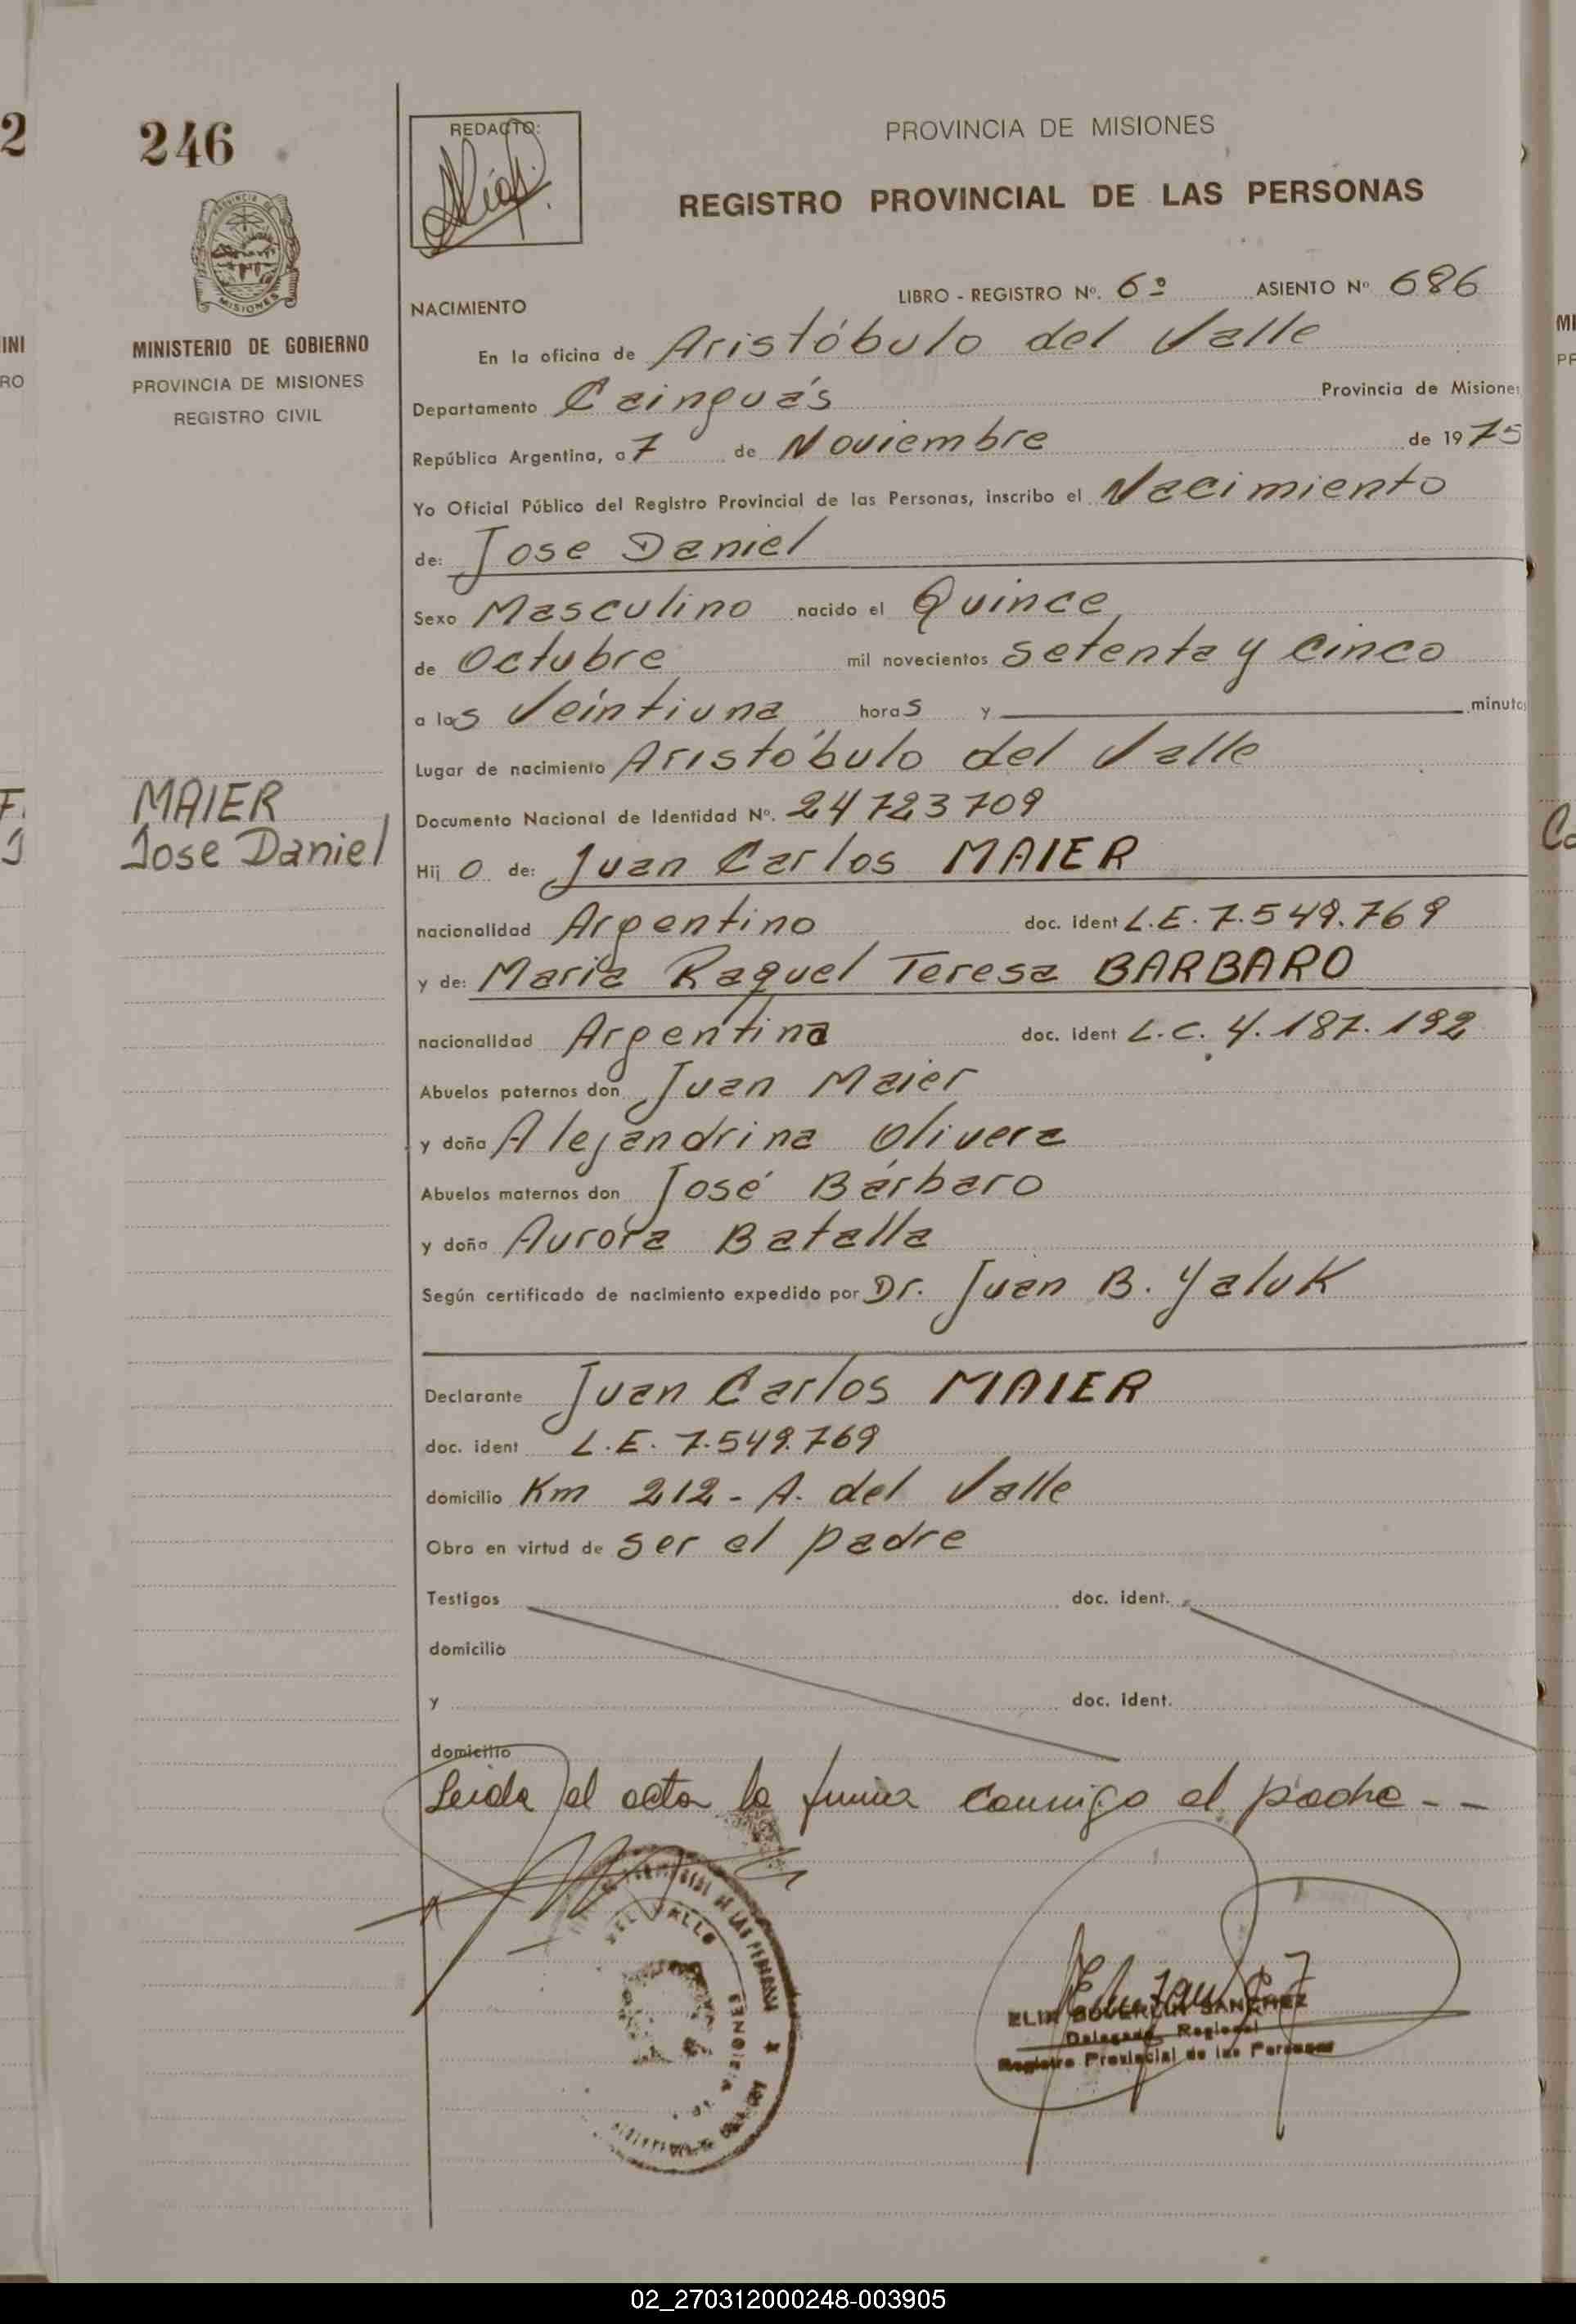 246
MINISTERIO DE GOBIERNO
PROVINCIA DE MISIONES
REGISTRO CIVIL
MAIER
Jose Daniel
REDACTO:
PROVINCIA DE MISIONES
REGISTRO PROVINCIAL DE LAS PERSONAS
LIBRO - REGISTRO Nº. 6º ASIENTO Nº 686
NACIMIENTO
En la oficina de Aristóbulo del Valle
Departamento Cainguás Provincia de Misiones
República Argentina, a 7 de Noviembre de 1975
Yo Oficial Público del Registro Provincial de las Personas, inscribo el Nacimiento
de: Jose Daniel
Sexo Masculino nacido el Quince
de Octubre mil novecientos setenta y cinco
a las Veintiuna horas y minutos
Lugar de nacimiento Aristóbulo del Valle
Documento Nacional de Identidad Nº. 24723709
Hij o de: Juan Carlos MAIER
nacionalidad Argentino doc. ident L.E. 7.549.769
y de: Maria Raquel Teresa BARBARO
nacionalidad Argentina doc. ident L.C. 4.187.192
Abuelos paternos don Juan Maier
y doña Alejandrina Olivera
Abuelos maternos don José Bárbaro
y doña Aurora Batalla
Según certificado de nacimiento expedido por Dr. Juan B. Yaluk
Declarante Juan Carlos MAIER
doc. ident L.E. 7.549.769
domicilio Km 212 - A. del Valle
Obra en virtud de ser el padre
Testigos doc. ident.
domicilio
y doc. ident.
domicilio
Leida el acta la firma conmigo el padre - -
DEL VALLE
SANCHEZ
Delegado Regional
Registro Provincial de las Personas
02_270312000248-003905